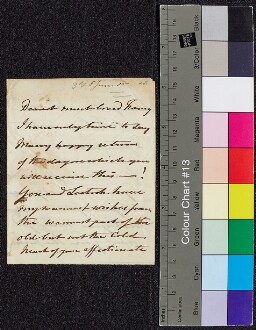 Dearest most loved Fanny
I have only time to day
Many happy returns
of the day on which you
will receive this — !
You and Lestock have
my warmest wishes from
the warmest part of the
old but not the Cold
heart of your affectionate
Colour Chart #13
Blue
Cyan
Green
Yellow
Red
Magenta
White
3/Color
Black